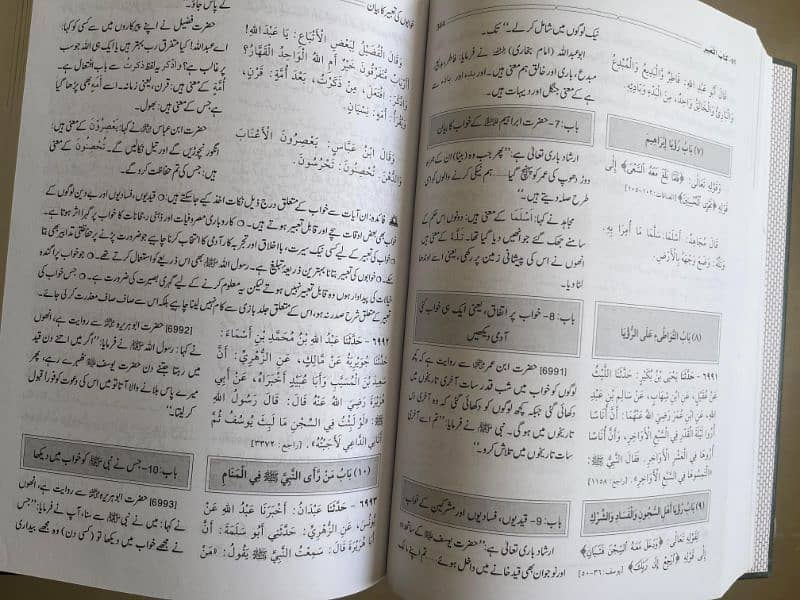 قَالَ أَبُو عَبْدِ اللهِ: فَاطِرٌ وَالْبَدِيعُ وَالْمُبْدِعُ
وَالْبَارِئُ وَالْخَالِقُ وَاحِدٌ، مِنَ الْبَدْءِ وَبَادِئِهِ.
(٧) بَابُ رُؤْيَا إِبْرَاهِيمَ
وَقَوْلُهُ تَعَالَى: ﴿فَلَمَّا بَلَغَ مَعَهُ السَّعْيَ﴾ إِلَى
قَوْلِهِ ﴿نَجْزِي الْمُحْسِنِينَ﴾ [الصافات:١٠٢-١٠٥]
قَالَ مُجَاهِدٌ: أَسْلَمَا: سَلَّمَا مَا أُمِرَا بِهِ.
وَتَلَّهُ: وَضَعَ وَجْهَهُ بِالْأَرْضِ.
(٨) بَابُ التَّوَاطُؤِ عَلَى الرُّؤْيَا
٦٩٩١ - حَدَّثَنَا يَحْيَى بْنُ بُكَيْرٍ: حَدَّثَنَا اللَّيْثُ
عَنْ عُقَيْلٍ، عَنِ ابْنِ شِهَابٍ، عَنْ سَالِمِ بْنِ عَبْدِ
اللهِ، عَنِ ابْنِ عُمَرَ رَضِيَ اللهُ عَنْهُمَا: أَنَّ أُنَاسًا
أُرُوا لَيْلَةَ الْقَدْرِ فِي السَّبْعِ الْأَوَاخِرِ، وَأَنَّ أُنَاسًا
أُرُوهَا فِي الْعَشْرِ الْأَوَاخِرِ. فَقَالَ النَّبِيُّ ﷺ:
«الْتَمِسُوهَا فِي السَّبْعِ الْأَوَاخِرِ». [راجع: ١١٥٨]
(٩) بَابُ رُؤْيَا أَهْلِ السُّجُونِ وَالْفَسَادِ وَالشِّرْكِ
لِقَوْلِهِ تَعَالَى: ﴿وَدَخَلَ مَعَهُ السِّجْنَ فَتَيَانِ﴾
إِلَى قَوْلِهِ ﴿ارْجِعْ إِلَى رَبِّكَ﴾ [يوسف:٣٦-٥٠]
نیک لوگوں میں شامل کر لے۔“ تک۔
ابوعبداللہ (امام بخاری) نے فرمایا: فاطر، بدیع،
مبدع، باری اور خالق ہم معنی ہیں۔
کے معنی جنگل اور دیہات ہیں۔
باب: 7- حضرت ابراہیم علیہ السلام کے خواب کا بیان
ارشاد باری تعالیٰ ہے: ”پھر جب وہ (بیٹا) ان کے ہمراہ
دوڑ دھوپ کی عمر کو پہنچ گیا..... ہم نیکی کرنے والوں کو اسی
طرح صلہ دیتے ہیں۔“
مجاہد نے کہا: أَسْلَمَا کے معنی ہیں: دونوں اس حکم کے
سامنے جھک گئے جو انھیں دیا گیا تھا۔ تَلَّهُ کے معنی ہیں:
انھوں نے اس کی پیشانی زمین پر رکھی، یعنی اسے اوندھا
لٹا دیا۔
باب: 8- خواب پر اتفاق، یعنی ایک ہی خواب کئی
آدمی دیکھیں
[6991] حضرت ابن عمر سے روایت ہے کہ کچھ
لوگوں کو خواب میں شب قدر سات آخری تاریخوں میں
دکھائی گئی جبکہ کچھ لوگوں کو دکھائی گئی کہ وہ آخری دس
تاریخوں میں ہو گی۔ نبی ﷺ نے فرمایا: ”تم اسے آخری
سات تاریخوں میں تلاش کرو۔“
باب: 9- قیدیوں، فسادیوں اور مشرکین کے خواب
ارشاد باری تعالیٰ ہے: ”حضرت یوسف کے ساتھ دو
اور نوجوان بھی قید خانے میں داخل ہوئے.....
خوابوں کی تعبیر کا بیان
وَقَالَ الْفُضَيْلُ لِبَعْضِ الْأَتْبَاعِ: يَا عَبْدَ اللهِ!
أَأَرْبَابٌ مُتَفَرِّقُونَ خَيْرٌ أَمِ اللهُ الْوَاحِدُ الْقَهَّارُ؟
وَادَّكَرَ: افْتَعَلَ، مِنْ ذَكَرْتُ، بَعْدَ أُمَّةٍ: قَرْنٍ،
وَيُقْرَأُ: أَمَهٍ: نِسْيَانٍ.
وَقَالَ ابْنُ عَبَّاسٍ: يَعْصِرُونَ الْأَعْنَابَ
وَالدُّهْنَ. تُحْصِنُونَ: تَحْرُسُونَ.
کے پاس جاؤ۔“
حضرت فضیل نے اپنے پیروکاروں میں سے کسی کو کہا:
اے عبداللہ! کیا متفرق رب بہتر ہیں یا ایک ہی اللہ جو سب
پر غالب ہے؟ وادکر یہ لفظ ذکرت سے باب افتعال ہے۔
أُمَّةٍ کے معنی ہیں: قرن، یعنی زمانہ۔ اسے أَمَهٍ بھی پڑھا گیا
ہے جس کے معنی ہیں: بھول۔
حضرت ابن عباس نے کہا: يَعْصِرُونَ کے معنی ہیں:
انگور نچوڑیں گے اور تیل نکالیں گے۔ تُحْصِنُونَ کے معنی
ہیں: جس کی تم حفاظت کرو گے۔
فائدہ: ان آیات سے خواب کے متعلق درج ذیل نکات اخذ کیے جا سکتے ہیں: ○ قیدیوں، فسادیوں اور بے دین لوگوں کے
خواب بھی بعض اوقات سچے اور قابل تعبیر ہوتے ہیں۔ ○ کاروباری مصروفیات اور ذہنی رجحانات کا خواب پر گہرا اثر ہوتا ہے۔
○ خواب کی تعبیر کے لیے کسی نیک سیرت، با اخلاق اور تجربہ کار آدمی کا انتخاب کرنا چاہیے جو ضرورت پڑنے پر حفاظتی تدابیر بھی بتا
سکے۔ ○ خوابوں کی تعبیر بتانا بہترین ذریعہ تبلیغ ہے۔ رسول اللہ ﷺ بھی اس ذریعے کو استعمال کرتے تھے۔ ○ جو خواب پراگندہ
خیالات کی پیداوار ہوں وہ قابل تعبیر نہیں ہوتے لیکن یہ معلوم کرنے کے لیے گہری بصیرت کی ضرورت ہے۔ ○ جس خواب کی
تعبیر کے متعلق شرح صدر نہ ہو، اس کے متعلق جلد بازی سے کام نہیں لینا چاہیے بلکہ اس سے صاف صاف معذرت کر لی جائے۔
٦٩٩٢ - حَدَّثَنَا عَبْدُ اللهِ بْنُ مُحَمَّدِ بْنِ أَسْمَاءَ:
حَدَّثَنَا جُوَيْرِيَةُ عَنْ مَالِكٍ، عَنِ الزُّهْرِيِّ: أَنَّ
سَعِيدَ بْنَ الْمُسَيَّبِ وَأَبَا عُبَيْدٍ أَخْبَرَاهُ، عَنْ أَبِي
هُرَيْرَةَ رَضِيَ اللهُ عَنْهُ قَالَ: قَالَ رَسُولُ اللهِ
ﷺ: «لَوْ لَبِثْتُ فِي السِّجْنِ مَا لَبِثَ يُوسُفُ ثُمَّ
أَتَانِي الدَّاعِي لَأَجَبْتُهُ». [راجع: ٣٣٧٢]
(١٠) بَابُ مَنْ رَأَى النَّبِيَّ ﷺ فِي الْمَنَامِ
٦٩٩٣ - حَدَّثَنَا عَبْدَانُ: أَخْبَرَنَا عَبْدُ اللهِ عَنْ
يُونُسَ، عَنِ الزُّهْرِيِّ: حَدَّثَنِي أَبُو سَلَمَةَ: أَنَّ
أَبَا هُرَيْرَةَ قَالَ: سَمِعْتُ النَّبِيَّ ﷺ يَقُولُ: «مَنْ
[6992] حضرت ابوہریرہ سے روایت ہے، انھوں
نے کہا: رسول اللہ ﷺ نے فرمایا: ”اگر میں اتنے دن قید
میں رہتا جتنے دن حضرت یوسف ٹھہرے رہے، پھر
میرے پاس بلانے والا آتا تو میں اس کی دعوت کو فوراً قبول
کر لیتا۔“
باب: 10- جس نے نبی ﷺ کو خواب میں دیکھا
[6993] حضرت ابوہریرہ سے روایت ہے، انھوں
نے کہا: میں نے نبی ﷺ سے سنا، آپ نے فرمایا: ”جس
نے مجھے خواب میں دیکھا تو (کسی دن) وہ مجھے بیداری